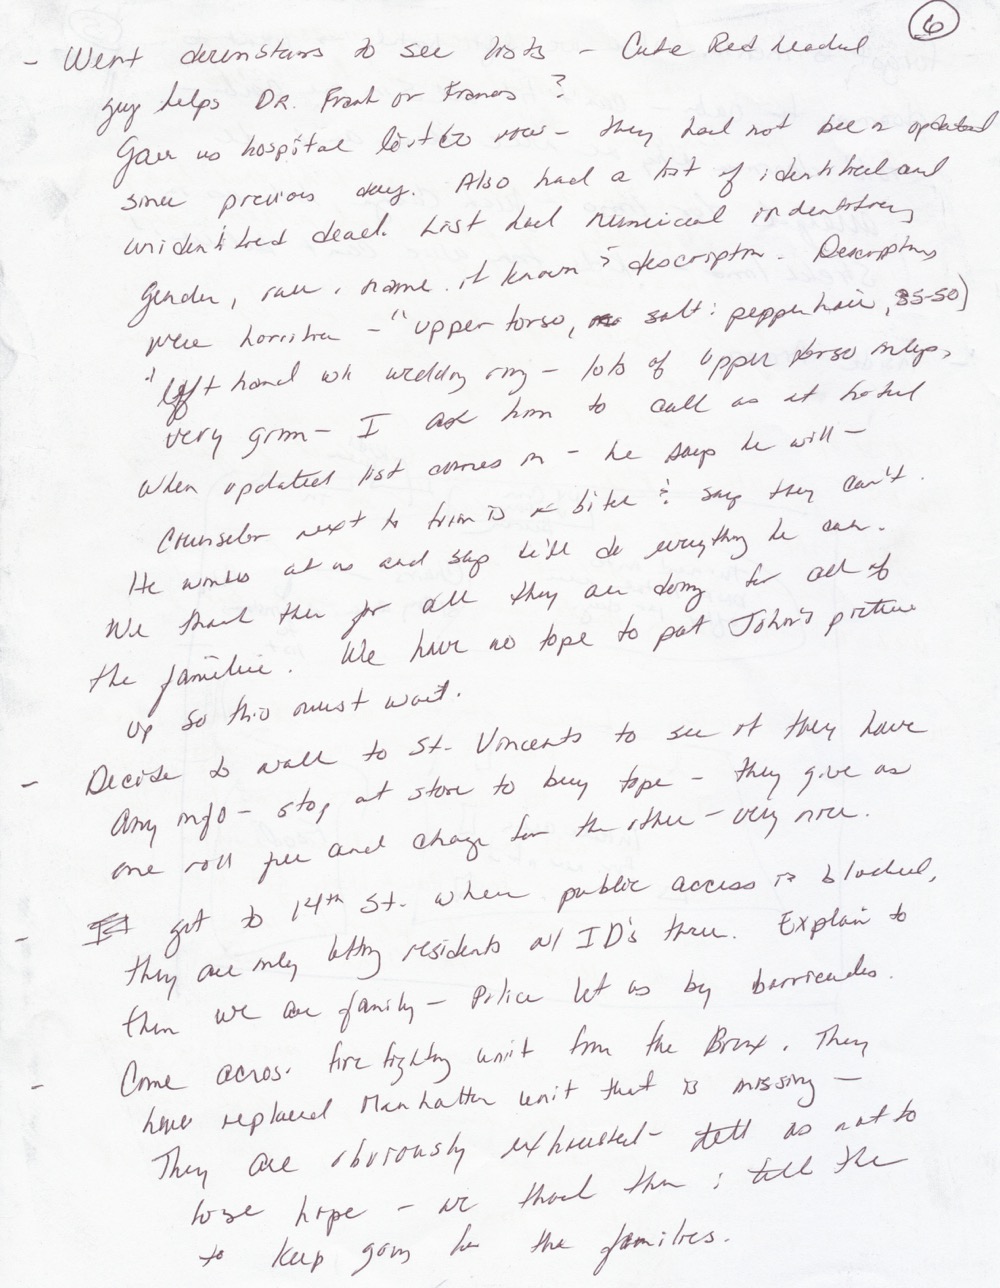 6
- Went downstairs to see lists - Cute Red headed
guy helps DR. Frank or Francis?
Gave us hospital list to view - they had not been updated
since previous day. Also had a list of identified and
unidentified dead. List had numerical indentifory
Gender, race, name if known & description. Descriptions
were horrible - "upper torso, salt & pepper hair, 35-50)
"left hand w/ wedding ring - lots of upper torso
very grim - I ask him to call us at hotel
when updated list comes in - he says he will -
Counselor next to him is a bitch & says they can't.
He winks at us and says he'll do everything he can.
We thank them for all they are doing for all of
the families. We have no tape to put John's picture
up so this must wait.
- Decide to walk to St. Vincents to see if they have
any info - stop at store to buy tape - they give us
one roll free and charge for the other - very nice.
- got to 14th St. where public access is blocked,
they are only letting residents w/ ID's thru. Explain to
them we are family - Police let us by barricades.
- Come across fire fighting unit from the Bronx. They
have replaced Manhattan unit that is missing -
They are obviously exhausted - tell us not to
lose hope - we thank them & tell the
to keep going for the families.